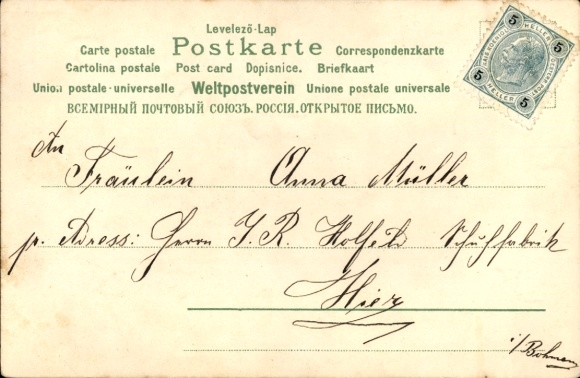 Levelező-Lap
Carte postale Postkarte Correspondenzkarte
Cartolina postale Post card Dopisnice. Briefkaart
Union postale-universelle Weltpostverein Unione postale universale
ВСЕМІРНЫЙ ПОЧТОВЫЙ СОЮЗЪ. РОССІЯ. ОТКРЫТОЕ ПИСЬМО.
5 HELLER 5
5 HELLER 5
An
Fräulein Anna Müller
pr. Adress: Herrn J. R. Holfeld Schuhfabrik
Hier
i/Bohmen